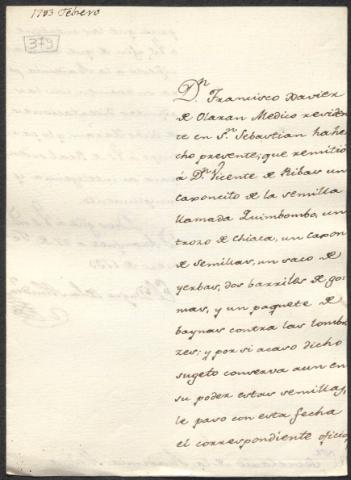 1783 Febrero
379
D.n Francisco Xavier
de Olaran Medico residen
te en S.n Sebastian ha he
cho presente, que remitió
á D.n Vicente de Ribas un
caxoncito de la semilla
llamada Quimbombo, un
trozo de Chiaca, un caxon
de semillas, un saco de
yerbas, dos barriles de go
mas, y un paquete de
baynas contra las lombri
zes; y por si acaso dicho
sugeto conserva aun en
su poder estas semillas,
le paso con esta fecha
el correspondiente oficio